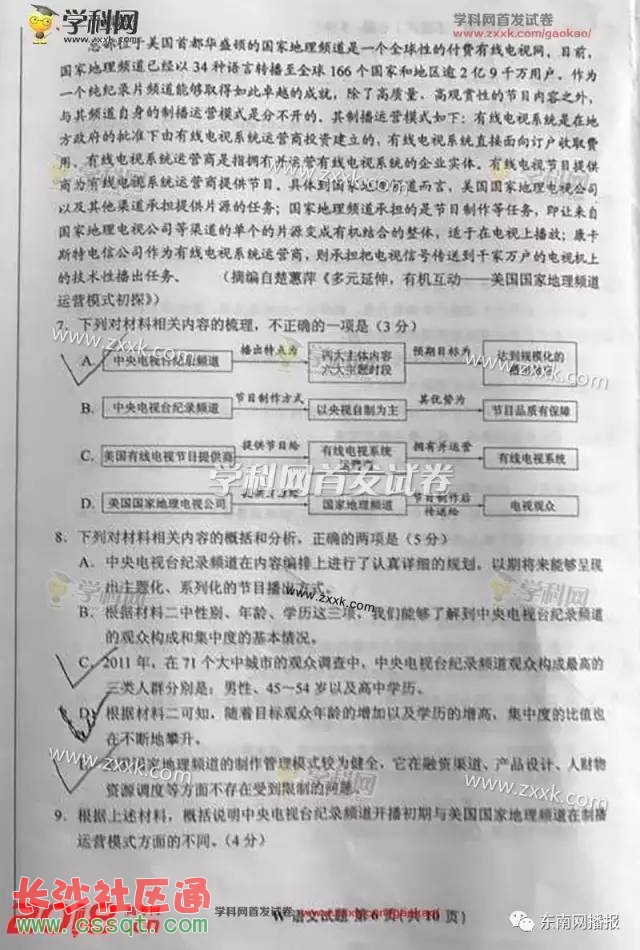 学科网
www.zxxk.com
学科网首发试卷
www.zxxk.com/gaokao/
总部位于美国首都华盛顿的国家地理频道是一个全球性的付费有线电视网。目前，
国家地理频道已经以 34 种语言转播至全球 166 个国家和地区逾 2 亿 9 千万用户。作为
一个纯纪录片频道能够取得如此卓越的成就，除了高质量、高观赏性的节目内容之外，
与其频道自身的制播运营模式是分不开的。其制播运营模式如下：有线电视系统是在地
方政府的批准下由有线电视系统运营商投资建立的，有线电视系统直接面向订户收取费
用。有线电视系统运营商是指拥有并运营有线电视系统的企业实体。有线电视节目提供
商为有线电视系统运营商提供节目。具体到国家地理频道而言，美国国家地理电视公司
以及其他渠道承担提供片源的任务；国家地理频道承担的是节目制作等任务，即让来自
国家地理电视公司等渠道的单个的片源变成有机结合的整体，适于在电视上播放；康卡
斯特电信公司作为有线电视系统运营商，则承担把电视信号传送到千家万户的电视机上
的技术性播出任务、 （摘编自楚蕙萍《多元延伸，有机互动——美国国家地理频道
运营模式初探》）
7．下列对材料相关内容的梳理，不正确的一项是（3 分）
A． 中央电视台纪录频道 播出特点为 四大主体内容 六大主题时段 预期目标为 达到规模化的
B． 中央电视台纪录频道 节目制作方式 以央视自制为主 其优势为 节目品质有保障
C． 美国有线电视节目提供商 提供节目给 有线电视系统 运营商 拥有并运营 有线电视系统
学科网首发试卷
D． 美国国家地理电视公司 国家地理频道 节目制作后 传送给 电视观众
8．下列对材料相关内容的概括和分析，正确的两项是（5 分）
A．中央电视台纪录频道在内容编排上进行了认真详细的规划，以期将来能够呈现
出主题化、系列化的节目播出方式。
www.zxxk.com
B．根据材料二中性别、年龄、学历这三项，我们能够了解到中央电视台纪录频道
的观众构成和集中度的基本情况。
C．2011 年，在 71 个大中城市的观众调查中，中央电视台纪录频道观众构成最高的
三类人群分别是：男性、45～54 岁以及高中学历。
D．根据材料二可知，随着目标观众年龄的增加以及学历的增高，集中度的比值也
在不断地攀升。
国家地理频道的制作管理模式较为健全，它在融资渠道、产品设计、人财物
资源调度等方面不存在受到限制的问题。
9．根据上述材料，概括说明中央电视台纪录频道开播初期与美国国家地理频道在制播
运营模式方面的不同。（4 分）
语文试题 第 6 页（共 10 页）
学科网首发试卷 www.zxxk.com/gaokao/
长沙社区通
CSSQT.COM
东南网播报